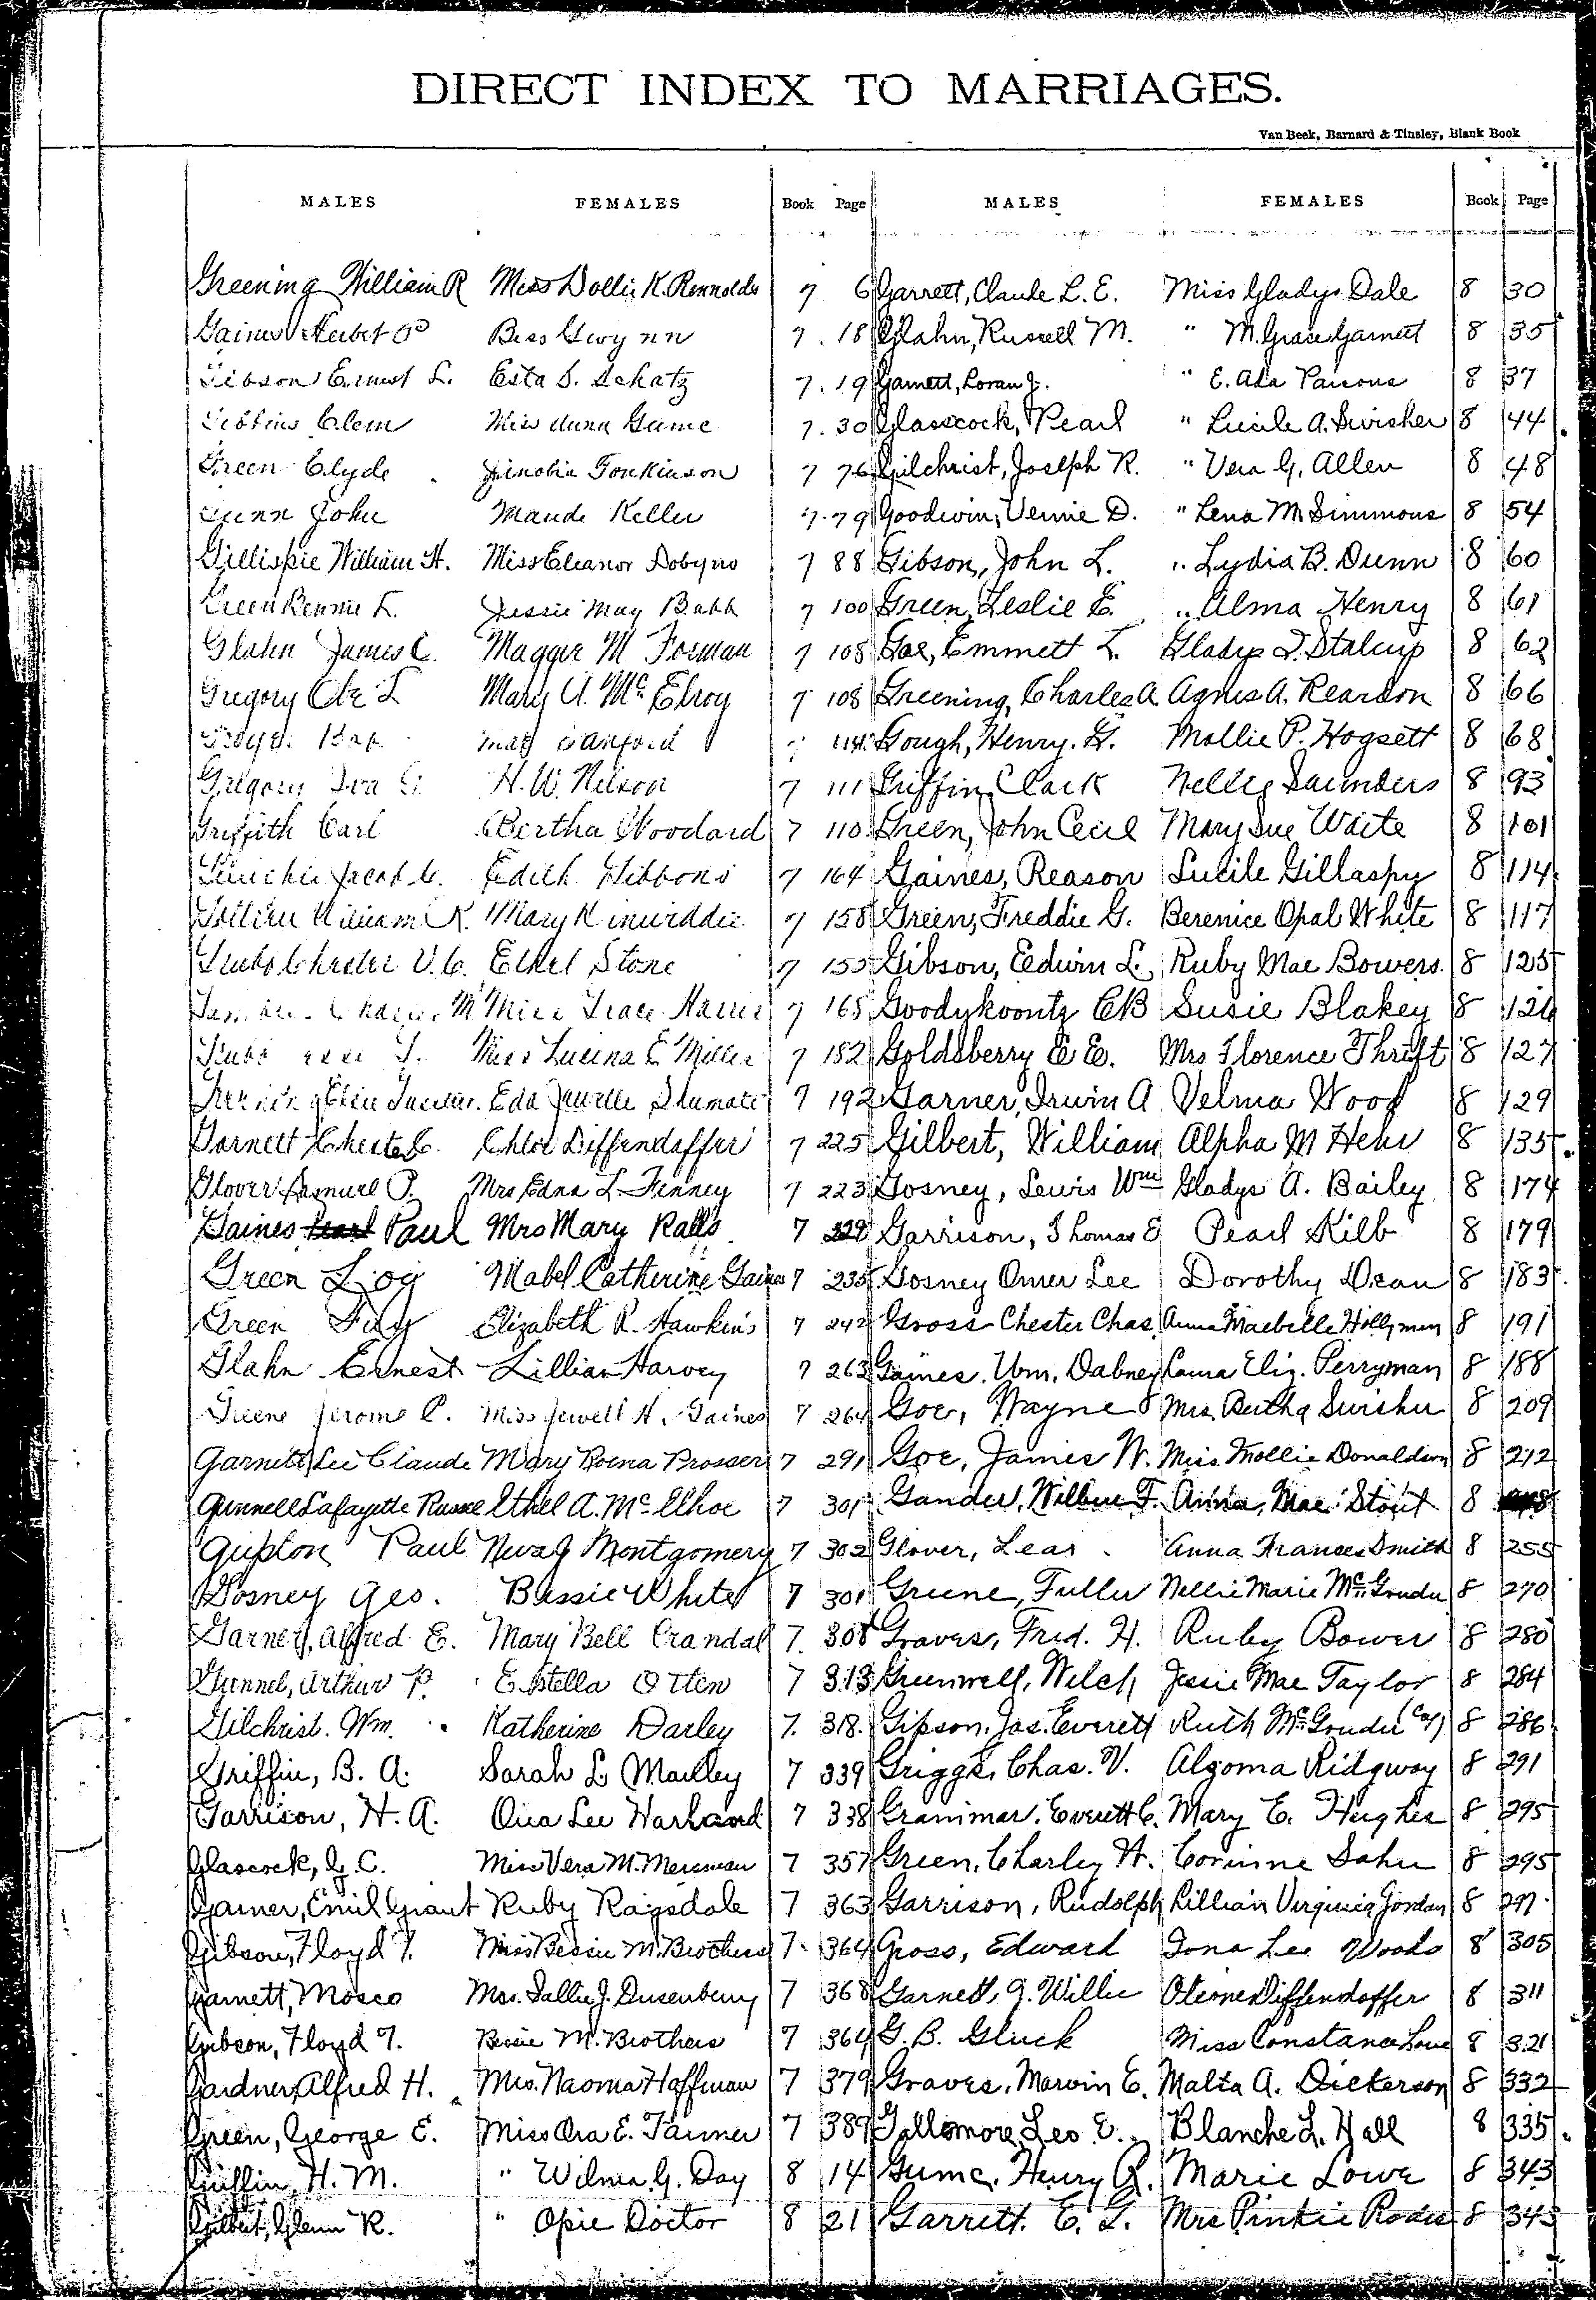 DIRECT INDEX TO MARRIAGES.
Van Beek, Barnard & Tinsley, Blank Book
MALES FEMALES Book Page MALES FEMALES Book Page
Greening William R Miss Dollie K. Rennolds 7 6 Garrett, Claude L. E. Miss Gladys Dale 8 30
Gaines Herbert P Bess Gwynn 7 18 Glahn, Russell M. " M. Grace Garnett 8 35
Gibson Ernest L. Esta S. Schatz 7 19 Garnett, Loran J. " E. Ada Parsons 8 37
Gibbins Clem Miss Anna Game 7 30 Glasscock, Pearl " Lucile A. Swisher 8 44
Green Clyde Zinobia Tonkinson 7 76 Gilchrist, Joseph R. " Vera G. Allen 8 48
Gunn John Maude Keller 7 79 Goodwin, Vernie D. " Lena M. Simmons 8 54
Gillispie William H. Miss Eleanor Dobyns 7 88 Gibson, John L. " Lydia B. Dunn 8 60
Green Bennie L. Jessie May Babb 7 100 Green, Leslie E. " Alma Henry 8 61
Glahn James C. Maggie M Forman 7 108 Goe, Emmett L. Gladys I. Stalcup 8 62
Gregory L Mary A. McElroy 7 108 Greening, Charles A. Agnes A. Reardon 8 66
May Sanford Gough, Henry G. Mollie P. Hogsett 8 68
Gregory Iva H. W. Nelson 7 111 Griffin, Clark Nellie Saunders 8 93
Griffith Carl Bertha Woodard 7 110 Green, John Cecil Mary Sue Waite 8 101
Jacob C. Edith Gibbons 7 164 Gaines, Reason Lucile Gillaspy 8 114
William K. Mary Kinwiddie 7 158 Green, Freddie G. Berenice Opal White 8 117
Grubs Chester V. C. Ethel Stone 7 155 Gibson, Edwin L. Ruby Mae Bowers 8 125
M. Miss Grace Harris 7 165 Goodykoontz C B Susie Blakey 8 126
Grubs T. Miss Lucina E Miller 7 182 Goldsberry E E. Mrs Florence Thrift 8 127
Eda Jewelle Shumate 7 192 Garner, Irwin A Velma Wood 8 129
Garnett Chester C. Chloe Diffendaffer 7 225 Gilbert, William Alpha M Hehr 8 135
Glover Samuel P. Mrs Edna L Finney 7 223 Gosney, Lewis Wm Gladys A. Bailey 8 174
Gaines Paul Mrs Mary Ralls 7 229 Garrison, Thomas E Pearl Kilb 8 179
Green Loy Mabel Catherine Gaines 7 235 Gosney Omer Lee Dorothy Dean 8 183
Green Fay Elizabeth R. Hawkins 7 242 Gross Chester Chas. Anna Maebelle Hollyman 8 191
Glahn Ernest Lillian Harvey 7 263 Gaines, Wm. Dabney Laura Eliz. Perryman 8 188
Greene Jerome C. Miss Jewell H. Gaines 7 264 Goe, Wayne Mrs. Bertha Swisher 8 209
Garnett Lee Claude Mary Roena Prosser 7 291 Goe, James W. Miss Mollie Donaldson 8 212
Gunnell Lafayette Russel Ethel A. McElhoe 7 301 Gander, Wilbur F. Anna Mae Stout 8
Gupton Paul Neva J Montgomery 7 302 Glover, Lear Anna Frances Smith 8 255
Gosney Geo. Bessie White 7 301 Greene, Fuller Nellie Marie McGruder 8 270
Garner, Alfred E. Mary Bell Crandal 7 308 Graves, Fred. H. Ruby Bower 8 280
Gunnel, Arthur P. Estella Otten 7 313 Greenwell, Welch Jessie Mae Taylor 8 284
Gilchrist. Wm. Katherine Darley 7 318 Gipson, Jas. Everett Ruth McGruder (Col) 8 286
Griffin, B. A. Sarah L. Mauley 7 339 Griggs, Chas. V. Algoma Ridgway 8 291
Garrison, H. A. Ora Lee Harland 7 338 Grammar, Everett C. Mary E. Hughes 8 295
Glascock, J. C. Miss Vera M. Merriman 7 357 Green, Charley H. Corinne Sahn 8 295
Garner, Emil Grant Ruby Ragsdale 7 363 Garrison, Rudolph Lillian Virginia Jordan 8 297
Gibson, Floyd T. Miss Bessie M. Brothers 7 364 Gross, Edward Iona Lee Woods 8 305
Garnett, Mosco Mrs. Sallie J. Dusenberry 7 368 Garnett, G. Willie Oleone Diffendaffer 8 311
Gibson, Floyd T. Bessie M. Brothers 7 364 G. B. Gluck Miss Constance Love 8 321
Gardner, Alfred H. Mrs. Naoma Hoffman 7 379 Graves, Marvin E. Malta A. Dickerson 8 332
Green, George E. Miss Ora E. Tanner 7 389 Gallemore, Leo E. Blanche L. Hall 8 335
Griffin, H. M. " Wilma G. Day 8 14 Gume, Henry R. Marie Lowe 8 343
Gilbert, Glenn R. " Opie Doctor 8 21 Garrett, E. G. Mrs Pinkie Rodes 8 345